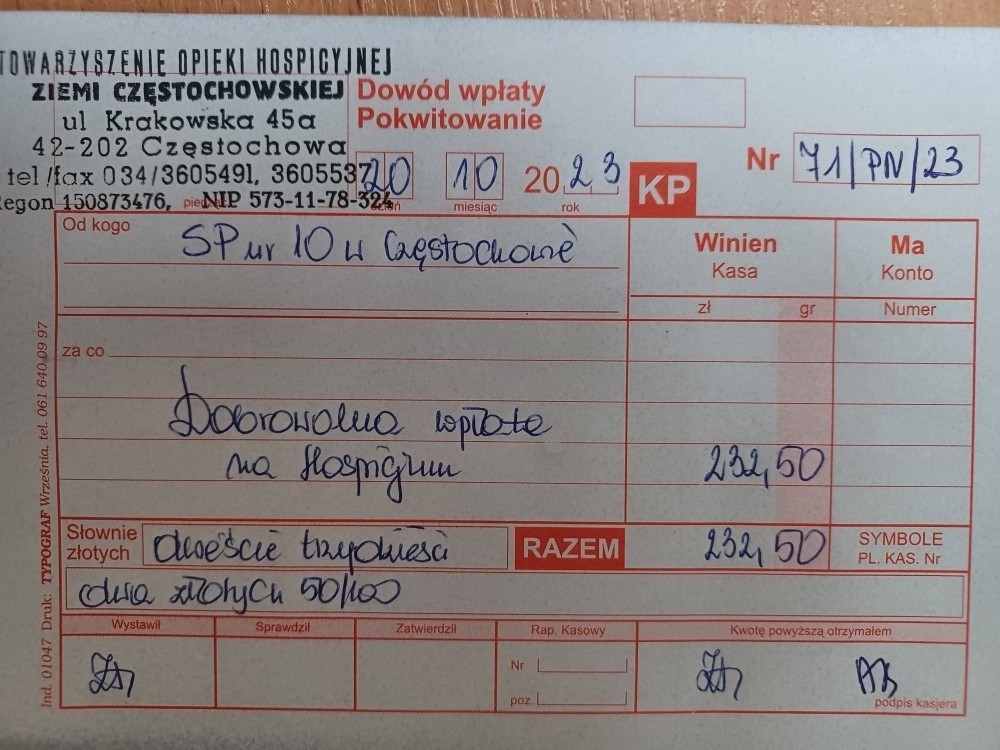 TOWARZYSZENIE OPIEKI HOSPICYJNEJ
ZIEMI CZĘSTOCHOWSKIEJ
ul Krakowska 45a
42-202 Częstochowa
tel/fax 034/3605491, 3605537
Regon 150873476, NIP 573-11-78-324
Dowód wpłaty
Pokwitowanie
20 10 2023
dzień miesiąc rok
KP
Nr 71/PN/23
Od kogo SP nr 10 w Częstochowie
Winien
Kasa
Ma
Konto
zł gr Numer
za co
Dobrowolna wpłata
na Hospicjum 232,50
Słownie
złotych dwieście trzydzieści
RAZEM 232,50
SYMBOLE
PL. KAS. Nr
dwa złotych 50/100
Wystawił Sprawdził Zatwierdził Rap. Kasowy Kwotę powyższą otrzymałem
Nr
poz.
podpis kasjera
Ind. 01047 Druk: TYPOGRAF Września, tel. 061 640 09 97